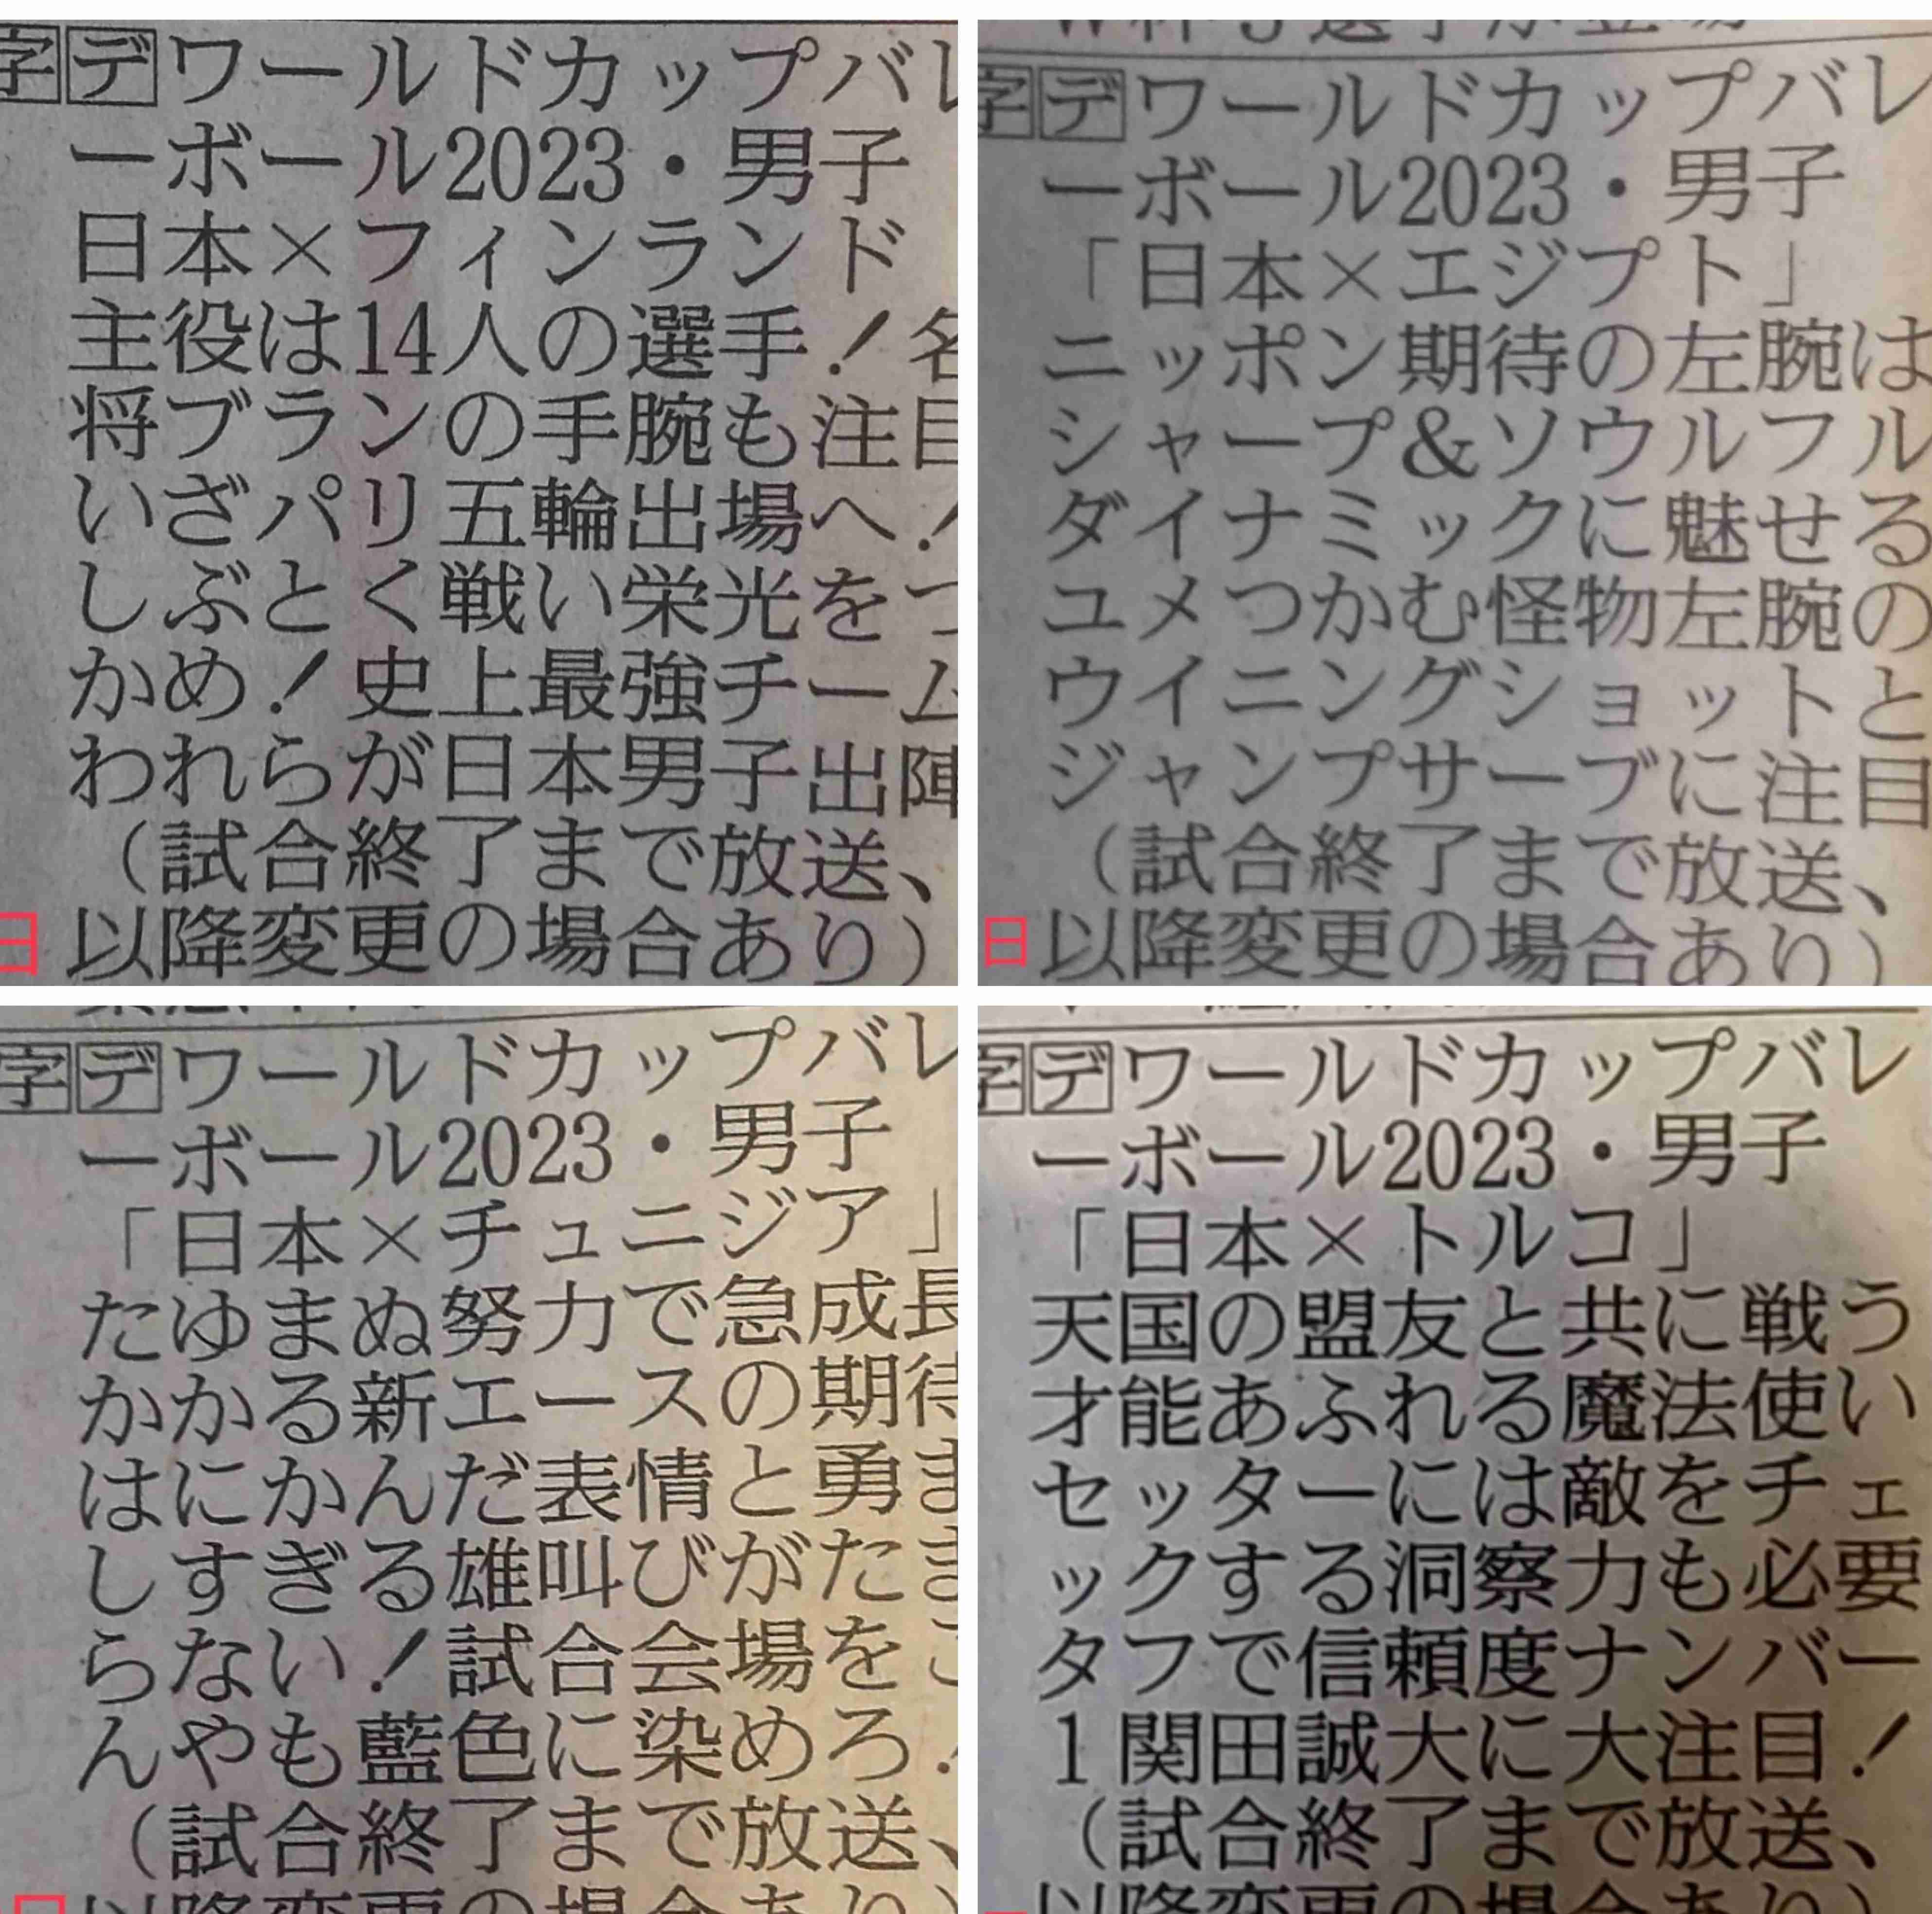 字デワールドカップバレ
ーボール2023・男子
日本×フィンランド
主役は14人の選手！名
将ブランの手腕も注目
いざパリ五輪出場へ！
しぶとく戦い栄光をつ
かめ！史上最強チーム
われらが日本男子出陣
（試合終了まで放送、
日以降変更の場合あり）
字デワールドカップバレ
ーボール2023・男子
「日本×エジプト」
ニッポン期待の左腕は
シャープ&ソウルフル
ダイナミックに魅せる
ユメつかむ怪物左腕の
ウイニングショットと
ジャンプサーブに注目
（試合終了まで放送、
日以降変更の場合あり）
字デワールドカップバレ
ーボール2023・男子
「日本×チュニジア」
たゆまぬ努力で急成長
かかる新エースの期待
はにかんだ表情と勇ま
しすぎる雄叫びがたま
らない！試合会場をこ
んやも藍色に染めろ！
（試合終了まで放送、
以降変更の場合あり）
字デワールドカップバレ
ーボール2023・男子
「日本×トルコ」
天国の盟友と共に戦う
才能あふれる魔法使い
セッターには敵をチェ
ックする洞察力も必要
タフで信頼度ナンバー
1関田誠大に大注目！
（試合終了まで放送、
以降変更の場合あり）